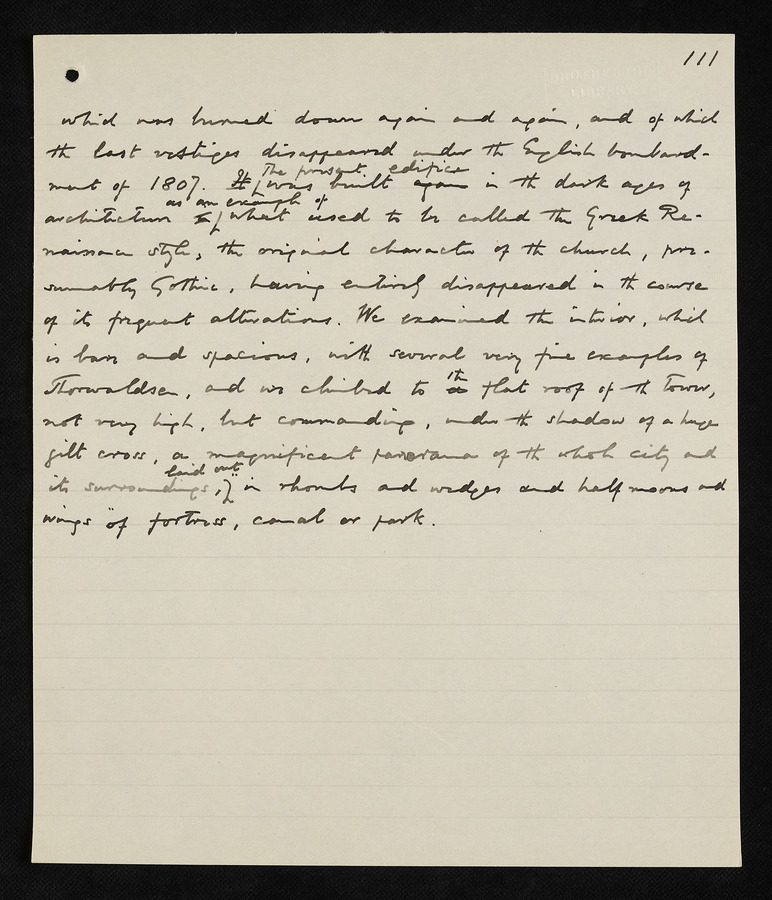 111
which was burned down again and again, and of which
the last vestiges disappeared under the English bombard-
The present edifice
ment of 1807. It was built again in the dark ages of
as an example of
architecture what used to be called the Greek Re-
naissance style, the original character of the church, pre-
sumably Gothic, having entirely disappeared in the course
of its frequent alterations. We examined the interior, which
is bare and spacious, with several very fine examples of
the
Thorwaldsen, and we climbed to a flat roof of the Tower,
not very high, but commanding, under the shadow of a huge
gilt cross, a magnificent panorama of the whole city and
laid out
its surroundings, in rhombs and wedges and half moons and
wings of fortress, canal or park.